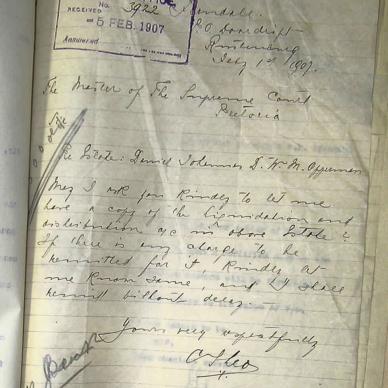 No. 3922
RECEIVED
- 5 FEB. 1907
Answered
P.O.
Rustenburg
Feby 1st 1907.
The Master of The Supreme Court
Pretoria
Re Estate: Daniel Johannes D. W. M. Opperman
May I ask you kindly to let me
have a copy of the liquidation and
distribution a/c in above Estate &
If there is any charge to be
remitted for it kindly let
me know same, and I shall
remit without delay.—
Yours very respectfully